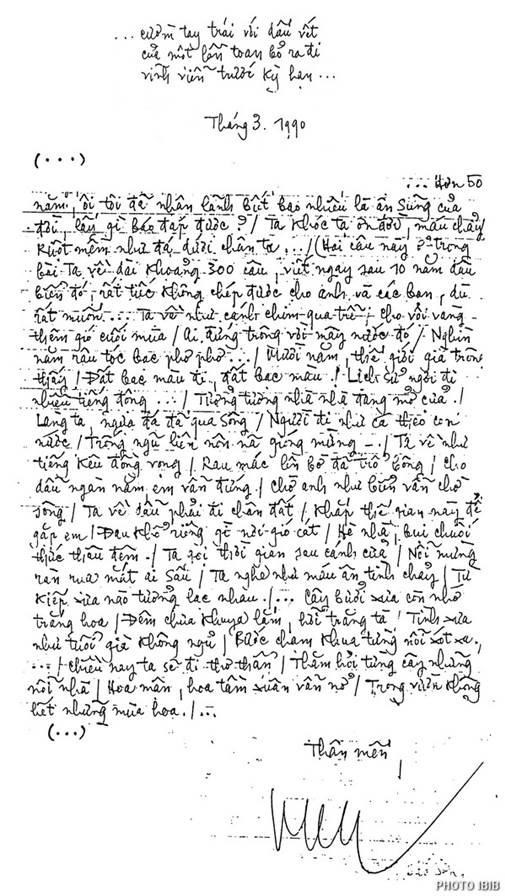 ... cườm tay trái với dấu vết
của một lần toan bỏ ra đi
vĩnh viễn trước kỳ hạn ...
Tháng 3. 1990
(...)
... Hơn 50
năm, ôi tôi đã nhân lãnh biết bao nhiêu là ân sủng của
đời, lấy gì báo đáp được? / Ta khóc tạ ơn đời, máu chảy
ruột mềm như đá dưới chân ta ... / (Hai câu này ở trong
bài Ta về dài khoảng 300 câu, viết ngay sau 10 năm dâu
biển đó, rất tiếc không chép được cho anh và các bạn, dù
rất muốn ... Ta về như cánh chim qua trễ / cho vội vàng
thêm gió cuối mùa / Ai đứng trông vời mây nước đó / Nghìn
năm râu tóc bạc phơ phơ ... / Mười năm, thế giới già trông
thấy / Đất bạc màu đi, đất bạc màu / Lịch sử ngơi đi
nhiều tiếng động ... / Tưởng tượng nhà nhà đang mở cửa /
Làng ta, ngựa đá đã qua sông / Người đi như cá theo con
nước / Trống ngũ liên nôn nả gióng mừng ... / Ta về như
tiếng kêu đồng vọng / Rau mác lên bờ đã trổ bông / Cho
dẫu ngàn năm em vẫn đứng / Chờ anh như biển vẫn chờ
sông / Ta về dẫu phải đi chân đất / Khắp thế gian này để
gặp em / Đau khổ riêng gì nơi gió cát / Hè nhà, bụi chuối
thức thâu đêm / Ta gọi thời gian sau cánh cửa / Nỗi mừng
ràn rụa mắt ai sâu / Ta nghe như máu ân tình chảy / Tự
kiếp xưa nào tưởng lạc nhau / ... Cây bưởi xưa còn nhớ
trắng hoa / Đêm chưa khuya lắm, hỡi trăng tà / Tình xưa
như tuổi già không ngủ / Bước chạm khua từng nỗi xót xa.
... / chiều nay ta sẽ đi thơ thẩn / Thăm hỏi từng cây những
nỗi nhà / Hoa mận, hoa tầm xuân vẫn nở / Trong vườn không
hết những mùa hoa. / ...
(...)
Thân mến,
PHOTO IBIB